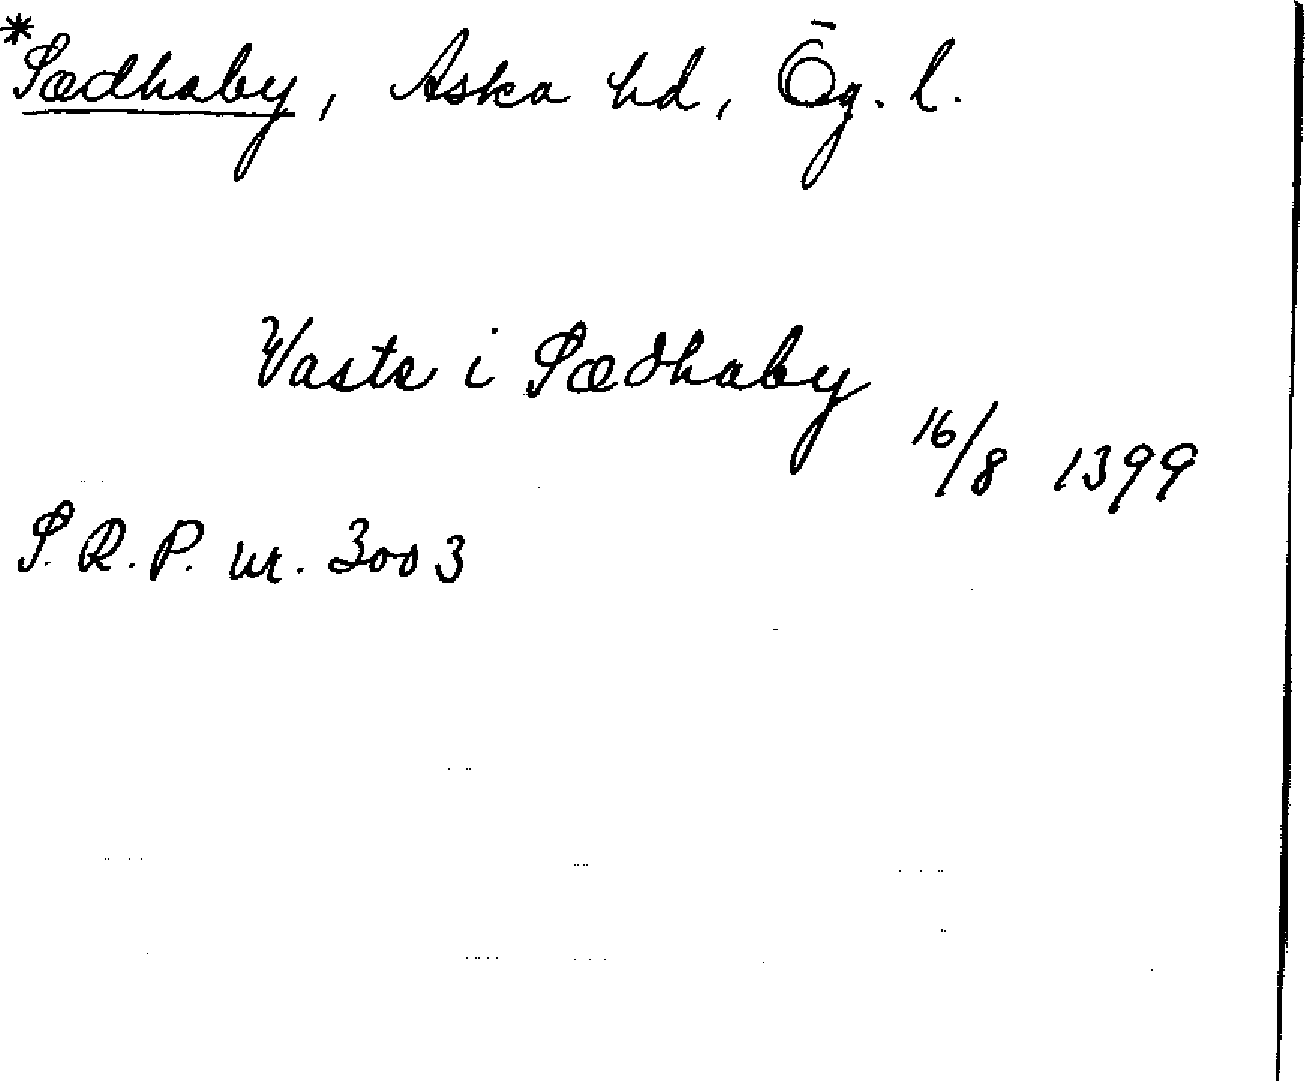 *Sædhaby, Aska hd, Ög. l.
Vaste i Sædhaby
16/8 1399
S. R. P. nr. 3003